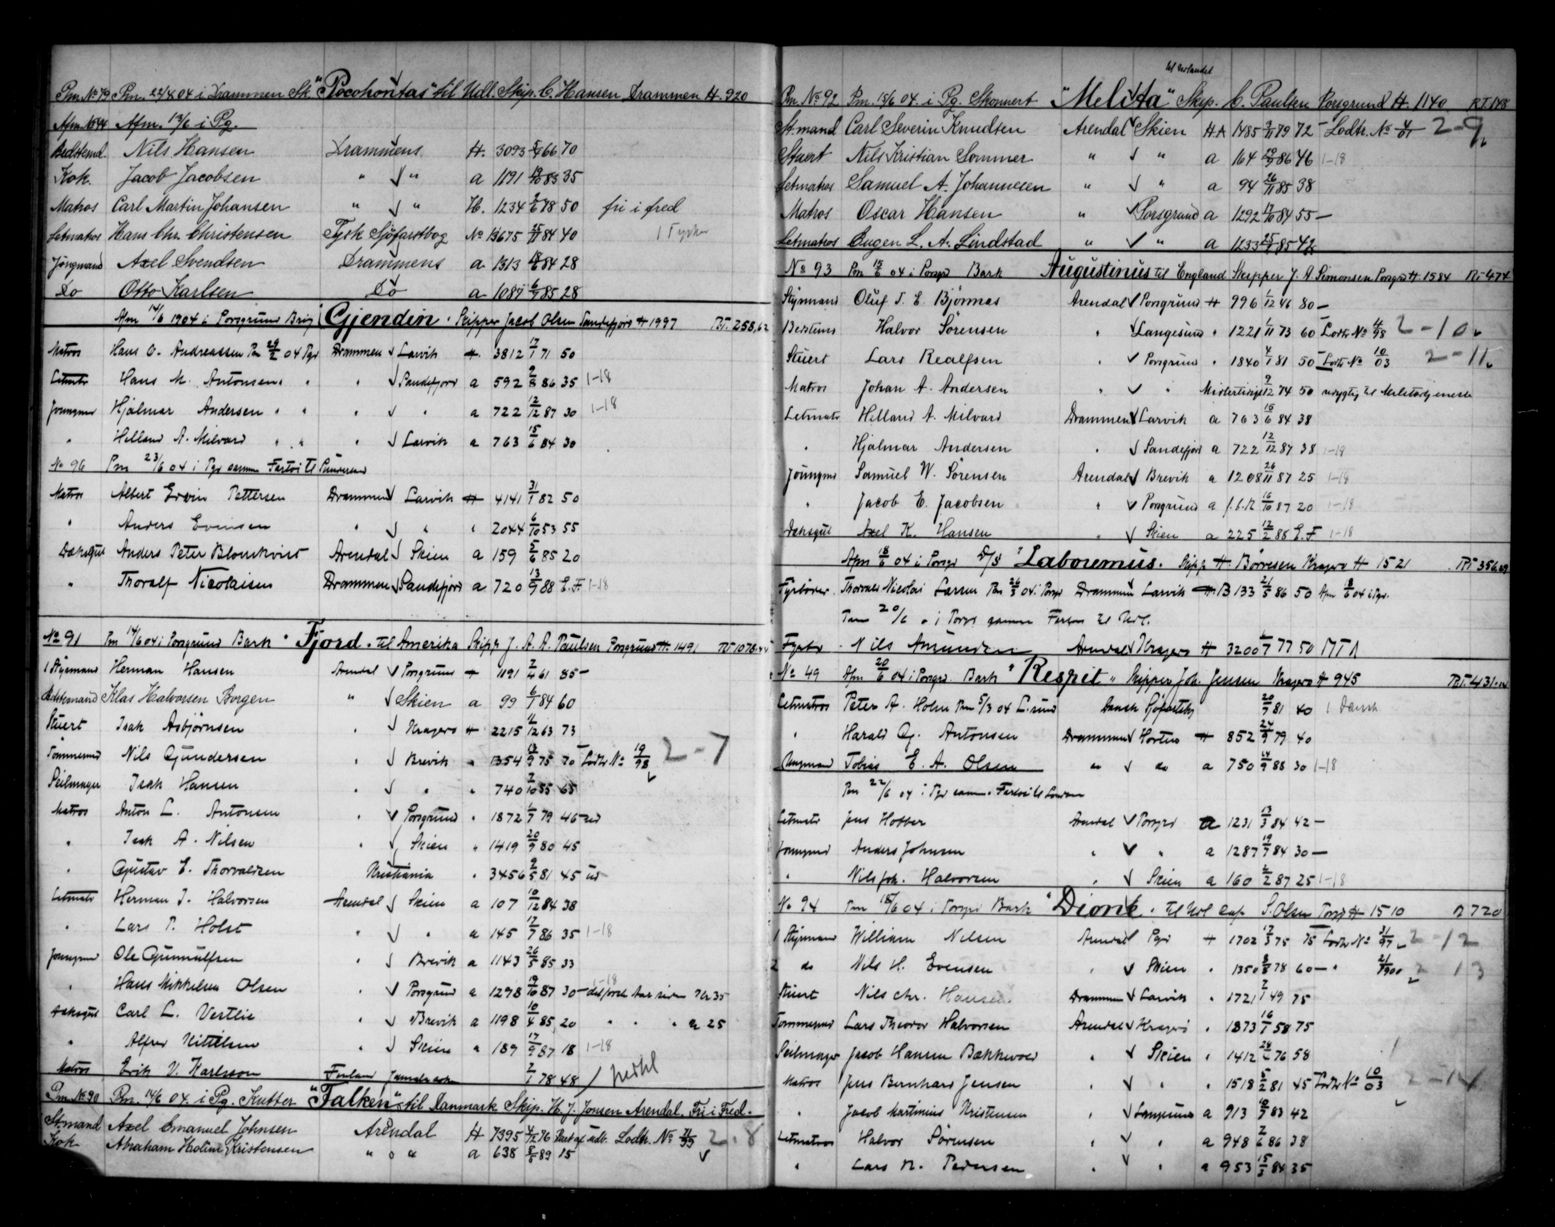 Pm. No 79 Pm. 22/8 04 i Drammen Sk "Pocohontas" til Udl. Skip. C. Hansen Drammen H. 920
Afm. 13/6 i Pg.
Nils Hansen Drammens H. 3093 66 70
Kok. Jacob Jacobsen " " a 1191 83 35
Matros Carl Martin Johansen " " H. 1234 78 50 fri i fred
Letmatros Hans Chr. Christensen Tysk Sjöfartsbog No 13675 84 40 1 Tysker
Jungmand Axel Svendsen Drammens a 1313 84 28
Do Otto Karlsen Do a 1089 85 28
Afm 14/6 1904 i Porsgrund Brig "Gjendin" Skipper Jacob Olsen Sandefjord H 1997 RT. 258,62
Matros Hans O. Andreassen Pm 04 Pgd Drammen Larvik H 3812 71 50
Letmatr Hans M. Antonsen " " " Sandefjord a 592 86 35 1-18
Joungmd Hjalmar Andersen " " " " a 722 12/12 87 30 1-18
" Helland A. Milvard " " " Larvik a 763 15/6 84 30
No 96 Pm 23/6 04 i Pgd samme Fartøi til
Matros Albert Ervin Pettersen Drammen Larvik H 4141 31/1 82 50
" Anders Evensen " " " 2044 6/10 53 55
Dæksgut Anders Peter Blomkvist Arendal Skien a 159 5/6 85 20
" Thoralf Nicolaisen Drammen Sandefjord a 720 13/9 88 E.F. 1-18
No 91 Pm 14/6 04 i Porsgrund Bark "Fjord" til Amerika Skipp J. A. A. Paulsen Porsgrund H. 1491 RT 1078.44
1 Styrmand Herman Hansen Arendal Porsgrund H 1191 2/4 61 85 -
Klas Halvorsen Borgen " Skien a 99 6/7 84 60
Stuert Isak Asbjørnsen " Kragerø H 2215 1/12 63 73
Tømmermd Nils Gundersen " Brevik " 1354 13/9 75 70 Lodtr No 19/98 2-7
Seilmager Isak Hansen " " " 740 2/10 55 65
Matros Anton L. Antonsen " Porsgrund " 1872 1/7 79 45 ud
" Isak A. Nilsen " Skien " 1419 20/9 80 45
" Gustav E. Thorvaldsen Kristiania " 3456 2/5 81 45 ud
Letmatr Herman J. Halvorsen Arendal Skien a 107 10/12 84 38
" Lars P. Holst " " a 145 17/7 86 35 1-18
Joungmd Ole Gunnulfsen " Brevik a 1143 26/5 85 33
" Hans Mikkelsen Olsen " Porsgrund a 1298 19/10 87 30 1-18
Dæksgut Carl L. Vestlie " Brevik a 1198 10/4 85 20 " " " a 25
" Alfred Kittilsen " Skien a 189 17/9 87 18 1-18
Matros Erik V. Karlsson Finland 2/1 78 48
Pm. No 90 Pm. 14/6 04. i Pg. Kutter "Falken" til Danmark Skip. H. J. Jonsen Arendal. Fri i Fred.
Stmand Axel Emanuel Johnsen Arendal H 7395 4/12 76 Part af udb. Lodtr. No 71/99 2-8
Kok Abraham Kristensen " " a 638 8/8 89 15
til Østlandet
Pm. No 92 Pm 15/6 04. i Pg. Skonnert "Melitta" Skip. C. Paulsen Porsgrund H. 1140 RT.148
Stmand Carl Severin Knudsen Arendal Skien HA 1485 79 72 - Lodtr. No 2-9
Stuert Nils Kristian Sommer " " a 164 86 46 1-18
Letmatros Samuel A. Johannesen " " a 94 26/11 85 38
Matros Oscar Hansen " Porsgrund a 1292 84 55 -
Letmatros Eugen L. A. Lindstad " " a 1133 85 42
No 93 Pm 15/6 04 i Porsgr Bark Augustinus til England Skipper J. A. Simonsen Porsgr H 1584 RT. 474
Styrmand Oluf T. E. Bjørnnas Arendal Porsgrund H 996 1/12 46 80 -
Halvor Sørensen " Langesund " 1221 1/11 73 60 Lodtr No 4/98 2-10
Stuert Lars Realfsen " Porsgrund " 1840 4/1 81 50 - Lodtr No 10/03 2-11
Matros Johan A. Andersen " " 9/12 74 50 udygtig til Militærtjeneste
Letmatr Helland A. Milvard Drammen Larvik a 763 15/6 84 38
" Hjalmar Andersen " Sandefjord a 722 12/12 87 38 1-18
Joungmd Samuel W. Sørensen Arendal Brevik a 1208 26/11 87 25 1-18
" Jacob E. Jacobsen " Porsgrund a 16/10 87 20 1-18
Dæksgut Axel K. Hansen " Skien a 225 12/2 88 E.F 1-18
Afm 18/6 04 i Porsgr D/S "Laboremus" Skipp H. Børresen Kragerø H 1521 RT. 356,09
Fyrbøder Thorvald Nicolai Larsen Pm 26/5 04 i Porsgr Drammen Larvik B 133 21/5 86 50 Afm 8/6 04 i Pgd.
20/6 i Porsgr samme Fartøi til Udl.
Fyrbø. Nils Amundsen Arendal Kragerø H 3200 77 50
No 49 Afm 20/6 04 i Porsgrd Bark "Respit" Skipper Joh. Jensen Kragerø H 945 RT. 431.14
Letmatros Peter A. Holm Pm 5/3 04 Dansk Sjøfartsbk 20/7 81 40 1 Dansk
" Harald G. Antonsen Drammen Horten H 852 24/9 79 40
Ungmand Tobias E. A. Olsen do do a 750 14/9 88 30 1-18
Pm 22/6 04 i Pgd samme Fartøi til London
Letmatr Jens Holter Arendal Porsgrd a 1231 13/3 84 42 -
Joungmd Anders Johnsen " " a 1287 19/7 84 30 -
" Nils Joh. Halvorsen " Skien a 160 2/2 87 25 1-18
No 94 Pm 15/6 04 i Porsgrd Bark "Dione" til Udl Cap S. Olsen Porsgr H 1510 R 720
1 Styrmand William Nilsen Arendal Pgd H 1702 17/5 75 75 Lodtr No 31/97 2-12
2 do Nils H. Evensen " Skien " 1350 8/8 78 60 - " 21/1900 2-13
Stuert Nils Chr. Hansen Drammen Larvik " 1721 2/1 49 75
Tømmermd Lars Theodor Halvorsen Arendal Kragerø " 1873 16/7 58 75
Seilmager Jacob Hansen Bækkevold " Skien " 1412 76 58
Matros Jens Bernhard Jensen " " " 1518 5/2 81 45 Lodtr No 10/03 2-14
" Jacob Martinius Kristensen " Langesund a 913 10/9 83 42
Letmatros Halvor Sørensen " " a 948 2/6 86 38
" Lars N. Pedersen " " a 953 15/3 84 35